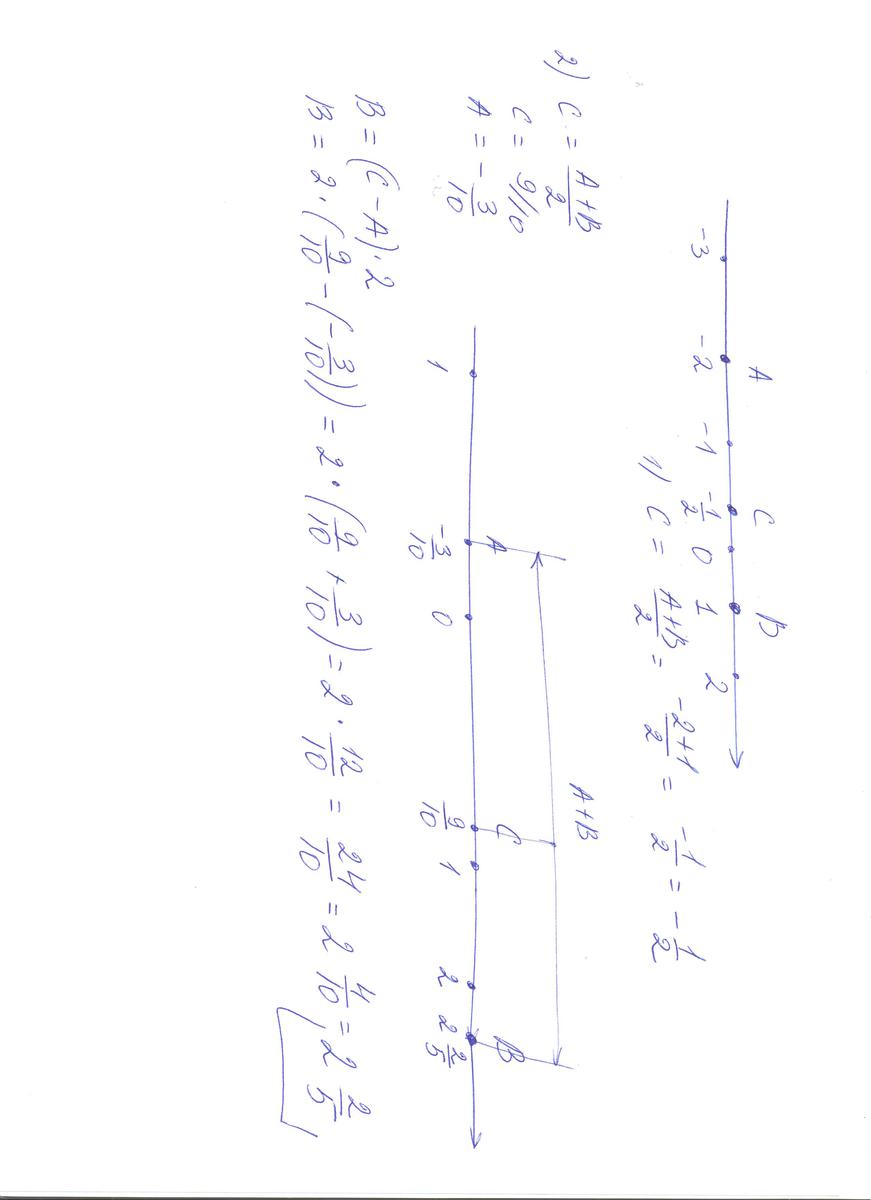 A C B
-3 -2 -1 -1/2 0 1 2
1) C = A+B/2 = -2+1/2 = -1/2 = -1/2
2) C = A+B/2
C = 9/10
A = -3/10
A+B
A C B
1 -3/10 0 9/10 1 2 2 2/5
B = (C-A)·2
B = 2·(9/10-(-3/10)) = 2·(9/10+3/10) = 2·12/10 = 24/10 = 2 4/10 = 2 2/5